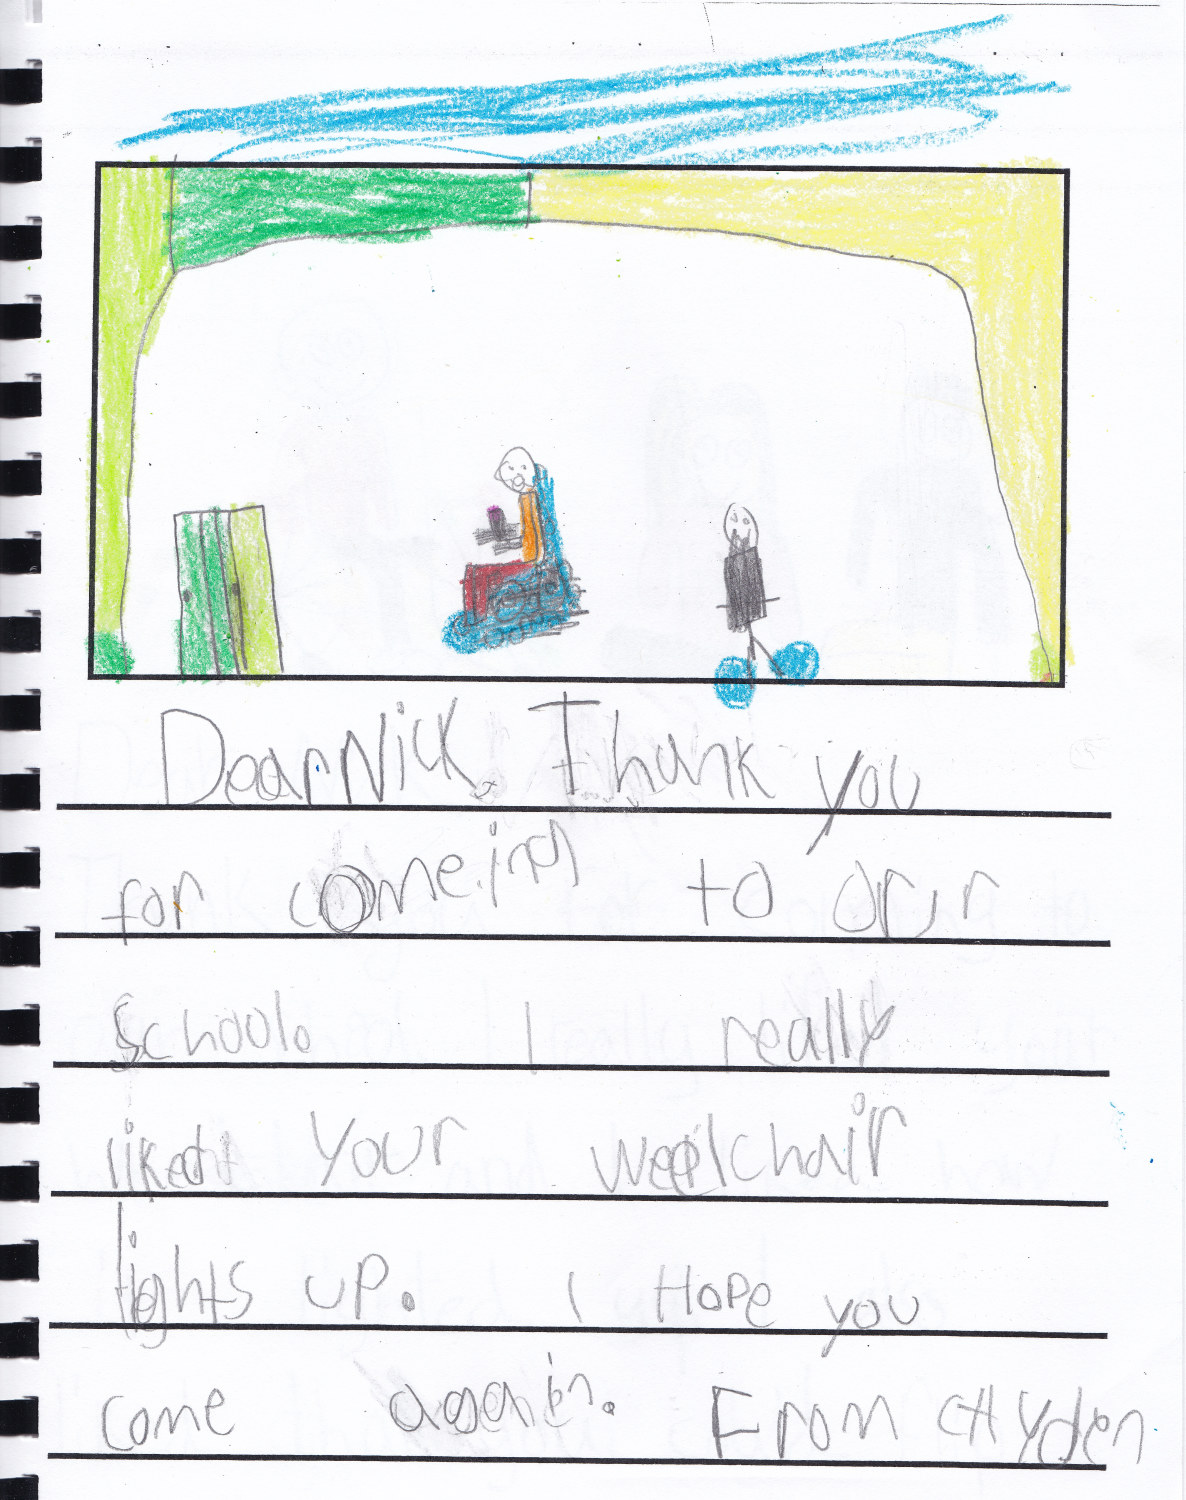 Dear Nick. Thank you
for comeing to our
school. I really
liked your weelchair
lights up. I Hope you
come again. From cHyden